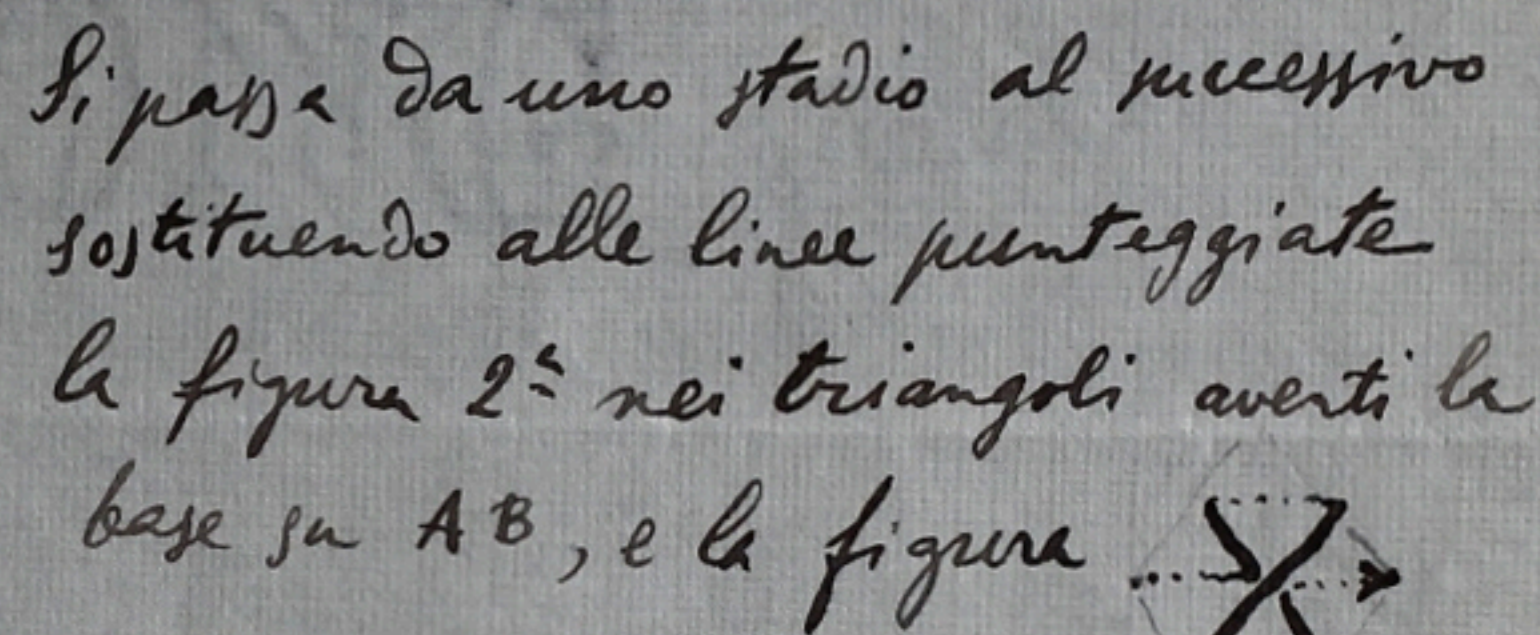 Si passa da uno stadio al successivo
sostituendo alle linee punteggiate
la figura 2ª nei triangoli aventi la
base su AB, e la figura